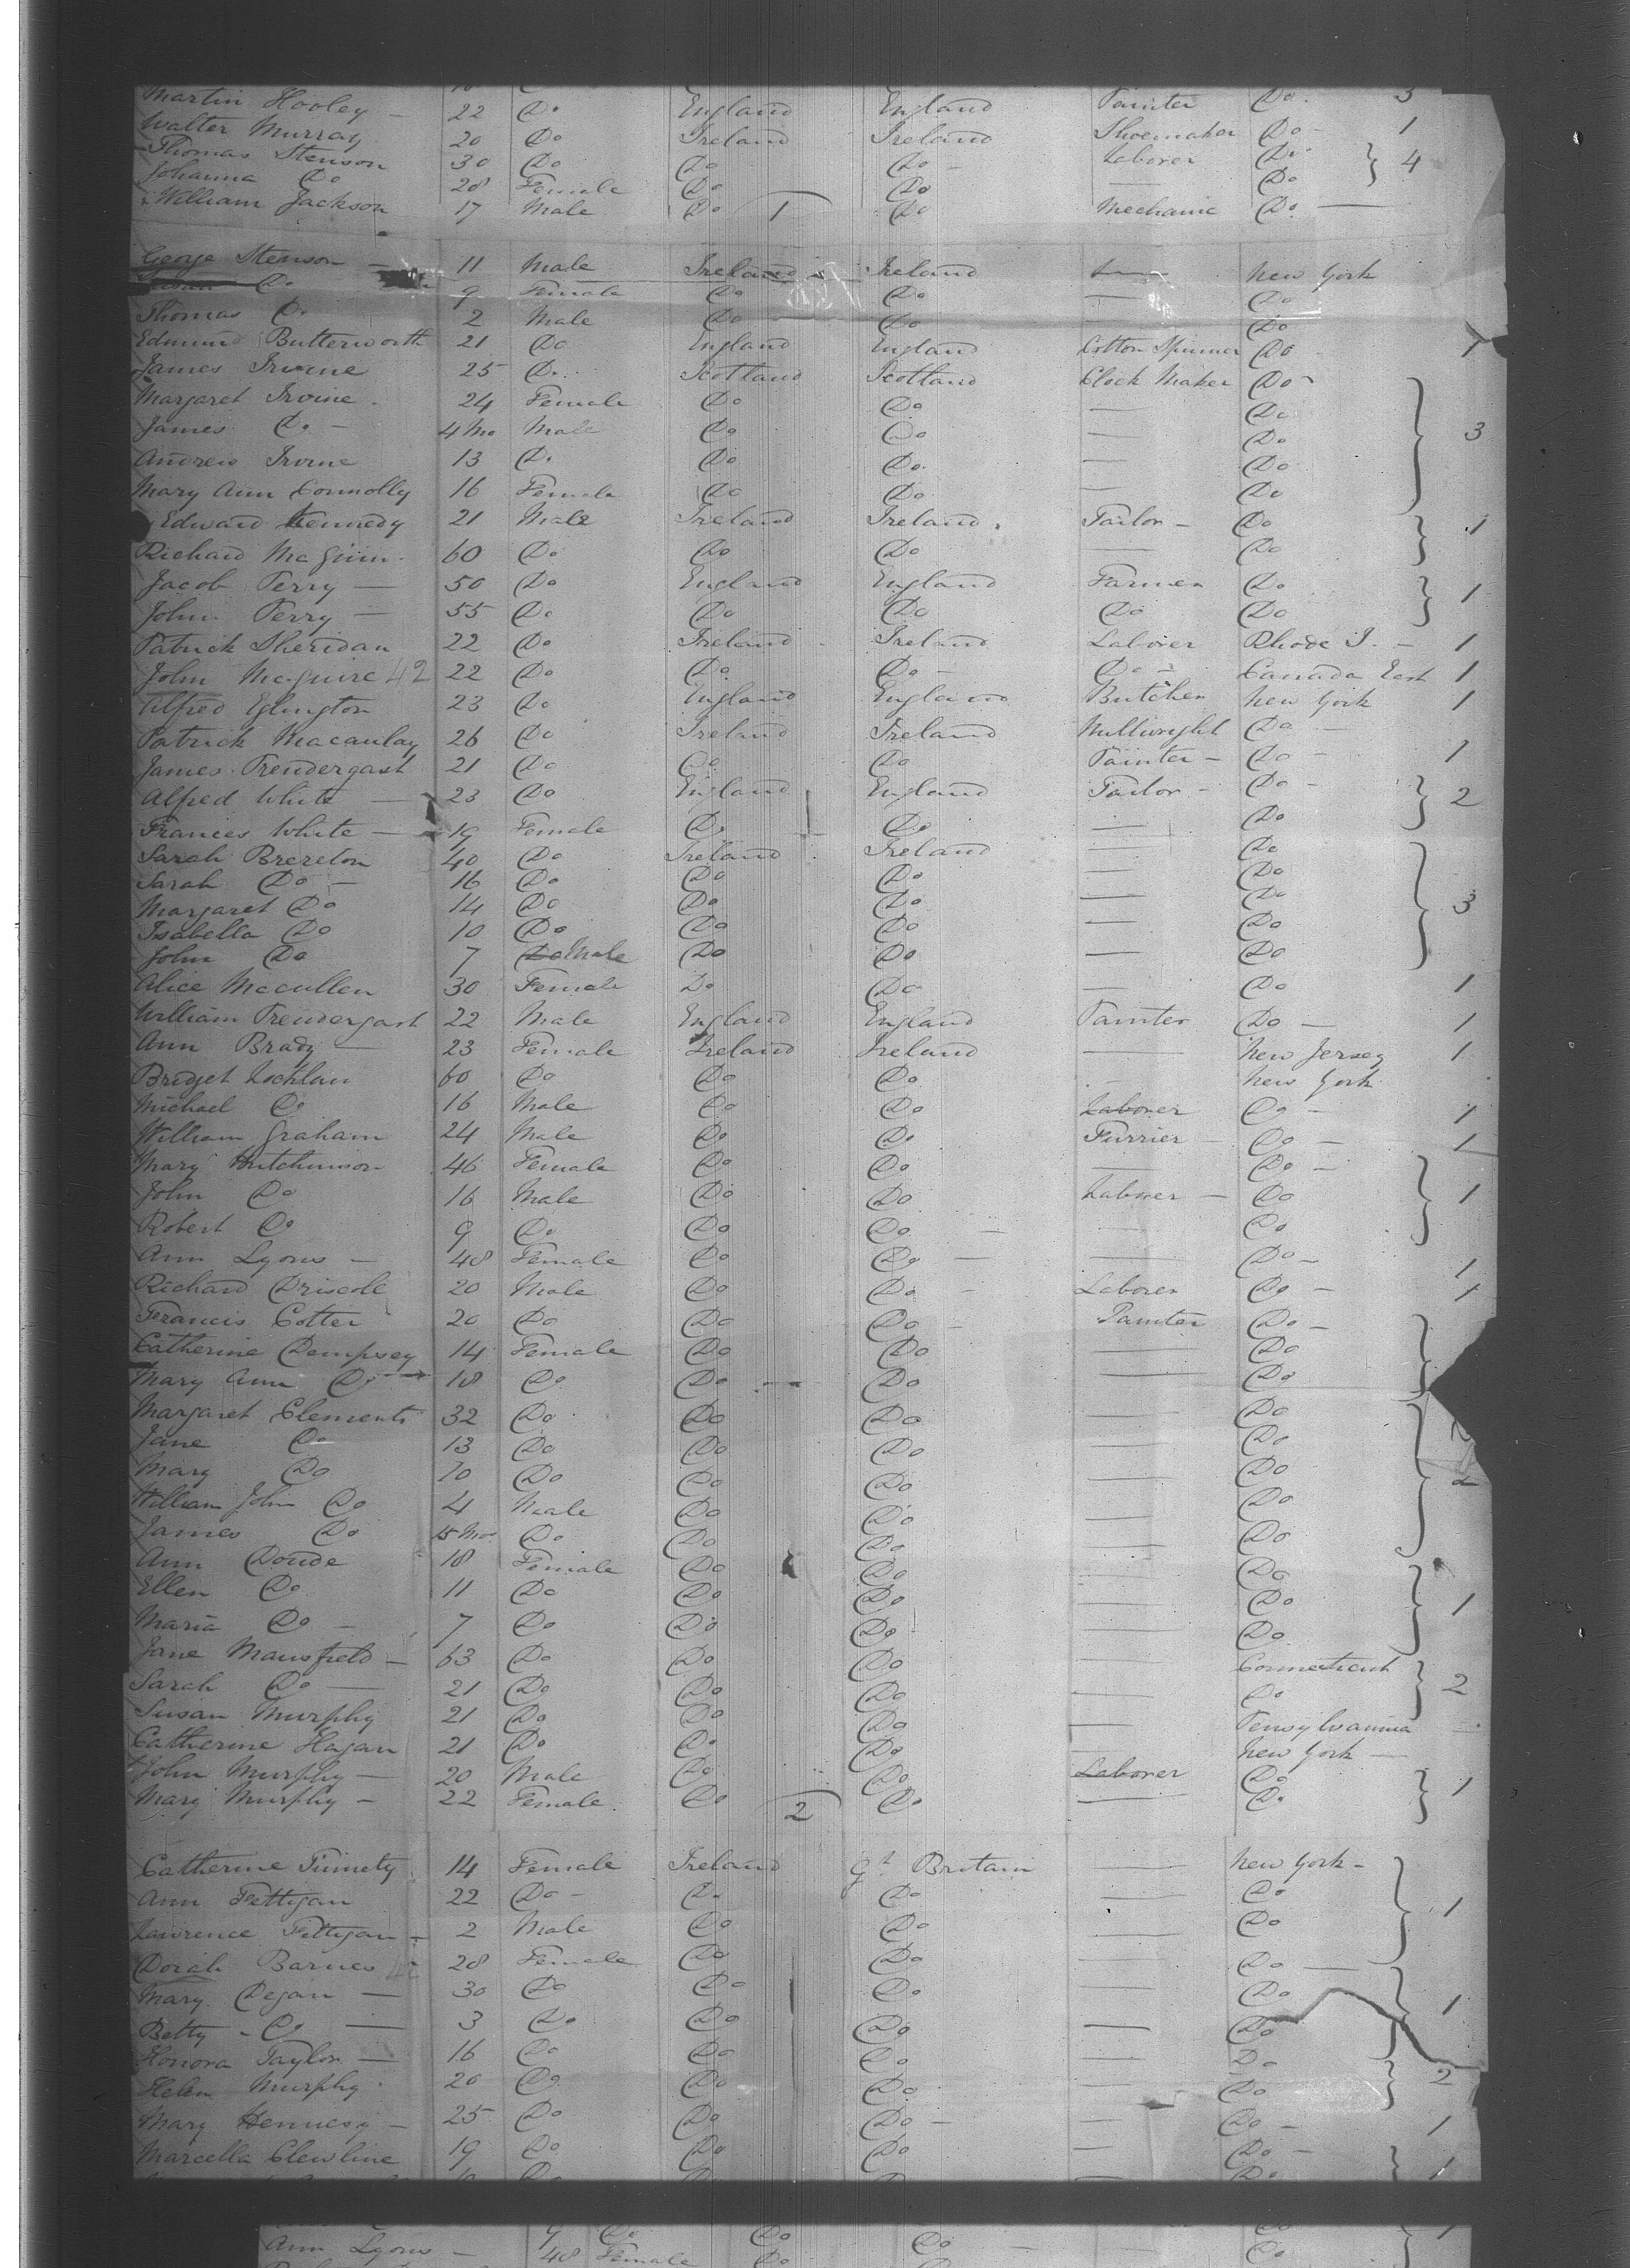 Martin Hooley - 22 Do England England Painter Do. 3
Walter Murray 20 Do Ireland Ireland Shoemaker Do - 1
Thomas Stenson 30 Do Do Do - Laborer Do } 4
Johanna Do 28 Female Do Do — Do
William Jackson 17 Male Do 1 Do Mechanic Do —
George Stenson - 11 Male Ireland Ireland — New York
Do 9 Female Do Do — Do
Thomas Do 2 Male Do Do Do
Edmund Butterworth 21 Do England England Cotton Spinner Do 1
James Irvine 25 Do. Scotland Scotland Clock Maker Do
Margaret Irvine 24 Female Do Do — Do
James Do - 4 Mo Male Do Do — Do } 3
Andrew Irvine 13 Do Do Do. — Do
Mary Ann Connolly 16 Female Do Do — Do
Edward Kennedy 21 Male Ireland Ireland. Tailor - Do } 1
Richard 60 Do Do Do — Do
Jacob Perry — 50 Do England England Farmer Do } 1
John Perry — 55 Do Do Do Do Do
Patrick Sheridan 22 Do Ireland Ireland Laborer Rhode I. - 1
John McGuire 42 22 Do Do Do - Do - Canada East 1
Alfred Eglington 23 Do England England Butcher New York 1
Patrick Macaulay 26 Do Ireland Ireland Millwright Do
James Prendergast 21 Do Do Do Painter - Do - 1
Alfred White — 23 Do England England Tailor - Do - } 2
Frances White — 19 Female Do Do — Do
Sarah Brereton 40 Do Ireland Ireland — Do
Sarah Do - 16 Do Do Do — Do
Margaret Do 14 Do Do Do — Do } 3
Isabella Do 10 Do Do Do — Do
John Do 7 Do Male Do Do — Do
Alice McCullen 30 Female Do Do — Do 1
William Prendergast 22 Male England England Painter Do — 1
Ann Brady — 23 Female Ireland Ireland — New Jersey 1
Bridget Lochlan 60 Do Do Do - New York
Michael Do 16 Male Do Do Laborer Do - 1
William Graham 24 Male Do Do Furrier - Do - 1
Mary Hutchinson 46 Female Do Do — Do -
John Do 16 Male Do Do Laborer - Do } 1
Robert Do 9 Do Do Do — — Do
Ann Lyons - 48 Female Do Do — — Do - 1
Richard Driscoll 20 Male Do Do - Laborer Do - 1
Francis Cotter 20 Do Do Do - Painter Do -
Catherine Dempsey 14 Female Do Do — Do }
Mary Ann Do 18 Do Do Do — Do
Margaret Clements 32 Do Do Do — Do
Jane Do 13 Do Do Do — Do
Mary Do 10 Do Do Do — Do }
William John Do 4 Male Do Do — Do
James Do 15 Mos Do Do Do — Do
Ann 18 Female Do Do — Do
Ellen Do 11 Do Do Do — Do } 1
Maria Do - 7 Do Do Do — Do
Jane Mansfield - 63 Do Do Do — Connecticut } 2
Sarah Do — 21 Do Do Do — Do
Susan Murphy 21 Do Do Do — Pensylvannia
Catherine Hagan 21 Do Do Do New York —
John Murphy — 20 Male Do Do Laborer Do } 1
Mary Murphy - 22 Female Do 2 Do — Do
Catherine 14 Female Ireland Gt Britain — New York -
Ann Fettigan 22 Do - Do Do — Do } 1
Lawrence Fettigan - 2 Male Do Do — Do
Barnes 28 Female Do Do — Do —
Mary Degan — 30 Do Do Do — Do } 1
Betty - Do — 3 Do Do Do — Do
Honora Taylor — 16 Do Do Do — Do } 2
Helen Murphy 20 Do Do Do — Do
Mary Hennesy - 25 Do Do Do - — Do - 1
Marcella Clewline 19 Do Do Do — Do - } 1
Ann Lyons - 48 Female Do Do